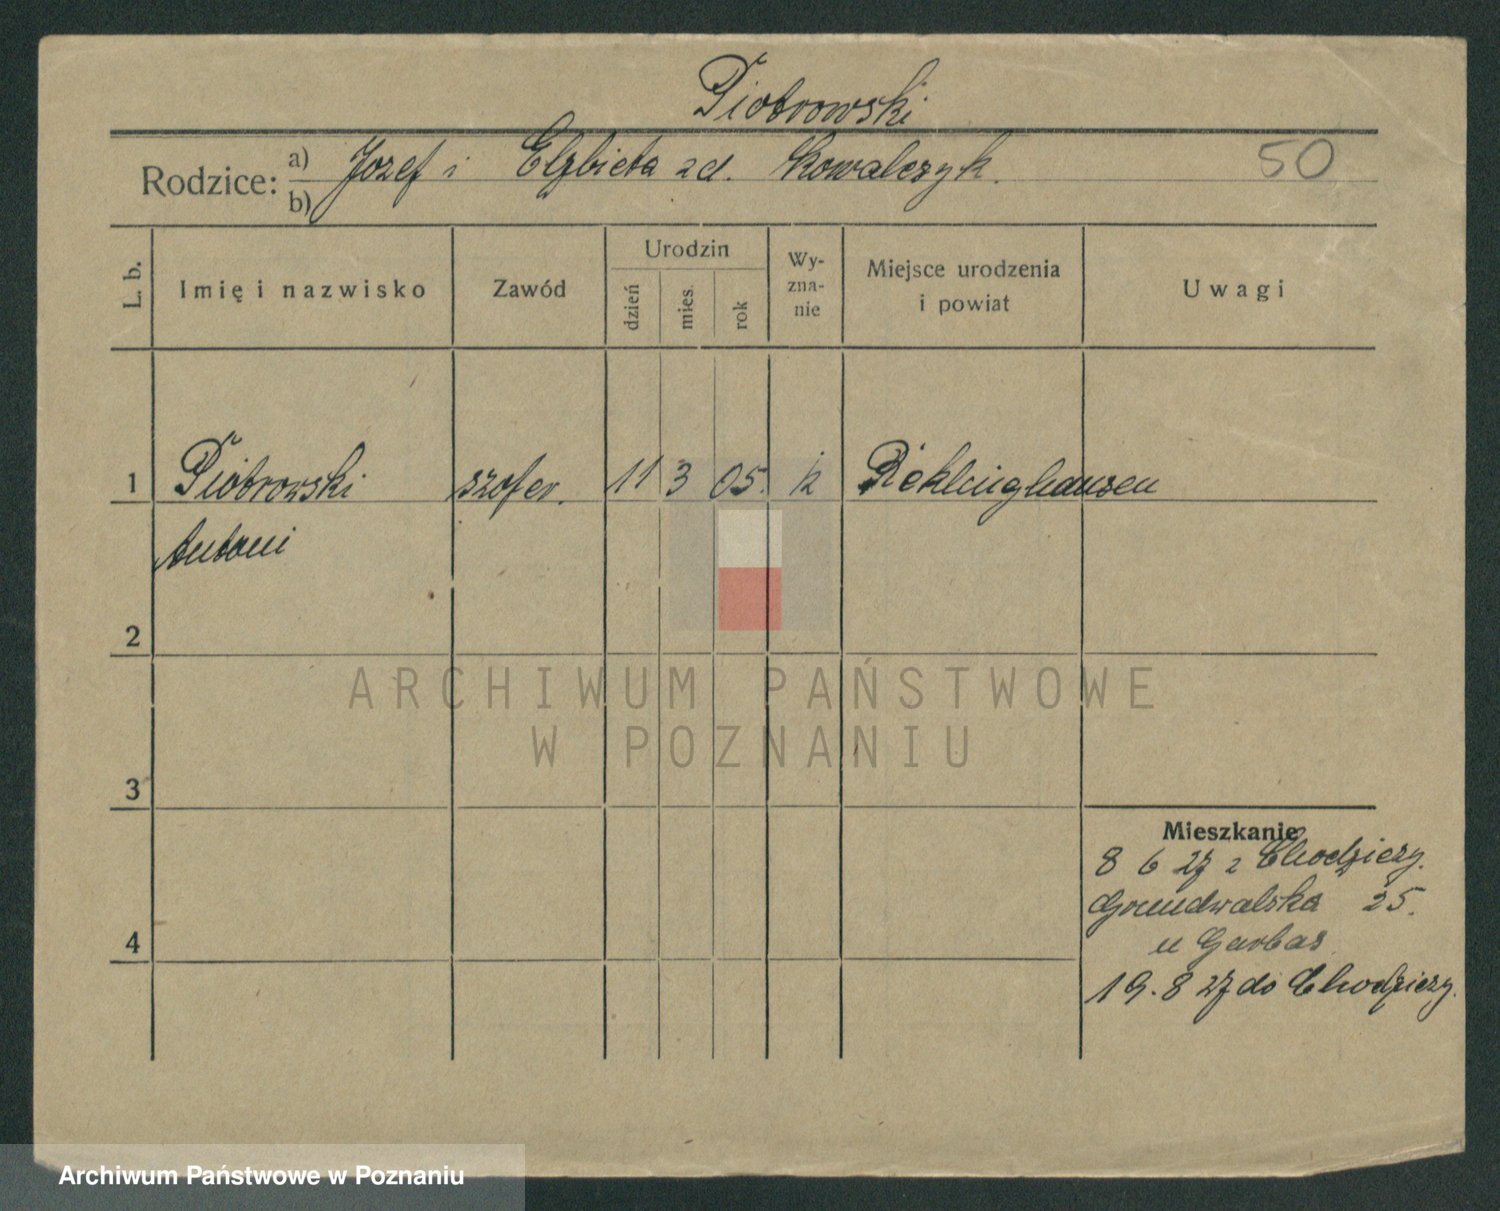 Piotrowski
Rodzice: a) Jozef i Elżbieta zd. Kowalczyk. 50
b)
L. b. Imię i nazwisko Zawód Urodzin dzień mies. rok Wy-zna-nie Miejsce urodzenia i powiat Uwagi
1 Piotrowski szofer. 11 3 05. k Reklinghausen
Antoni
2
3
ARCHIWUM PAŃSTWOWE
W POZNANIU
Mieszkanie
8 6 27 z Chodzieży.
Grundwalska 25.
u Garbas
4
19.8 27 do Chodzieży.
Archiwum Państwowe w Poznaniu